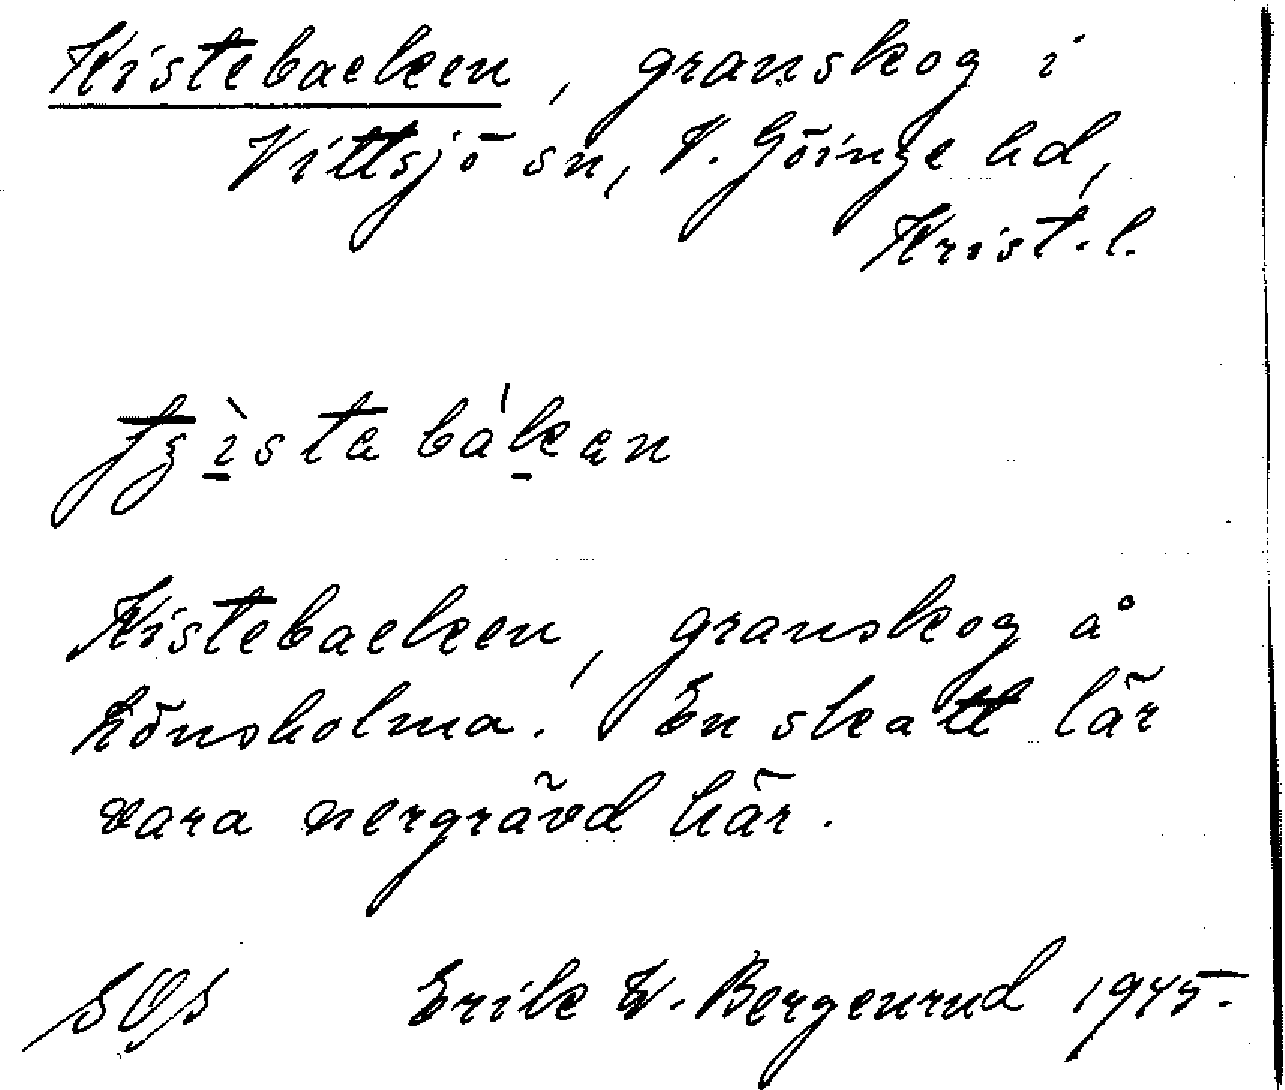 Kistebacken, granskog i
Vittsjö sn, V. Göinge hd,
Krist. l.
Kistebacken, granskog å
Hönsholma. En skatt lär
vara nergrävd här.
Erik W. Bergenrud 1945.